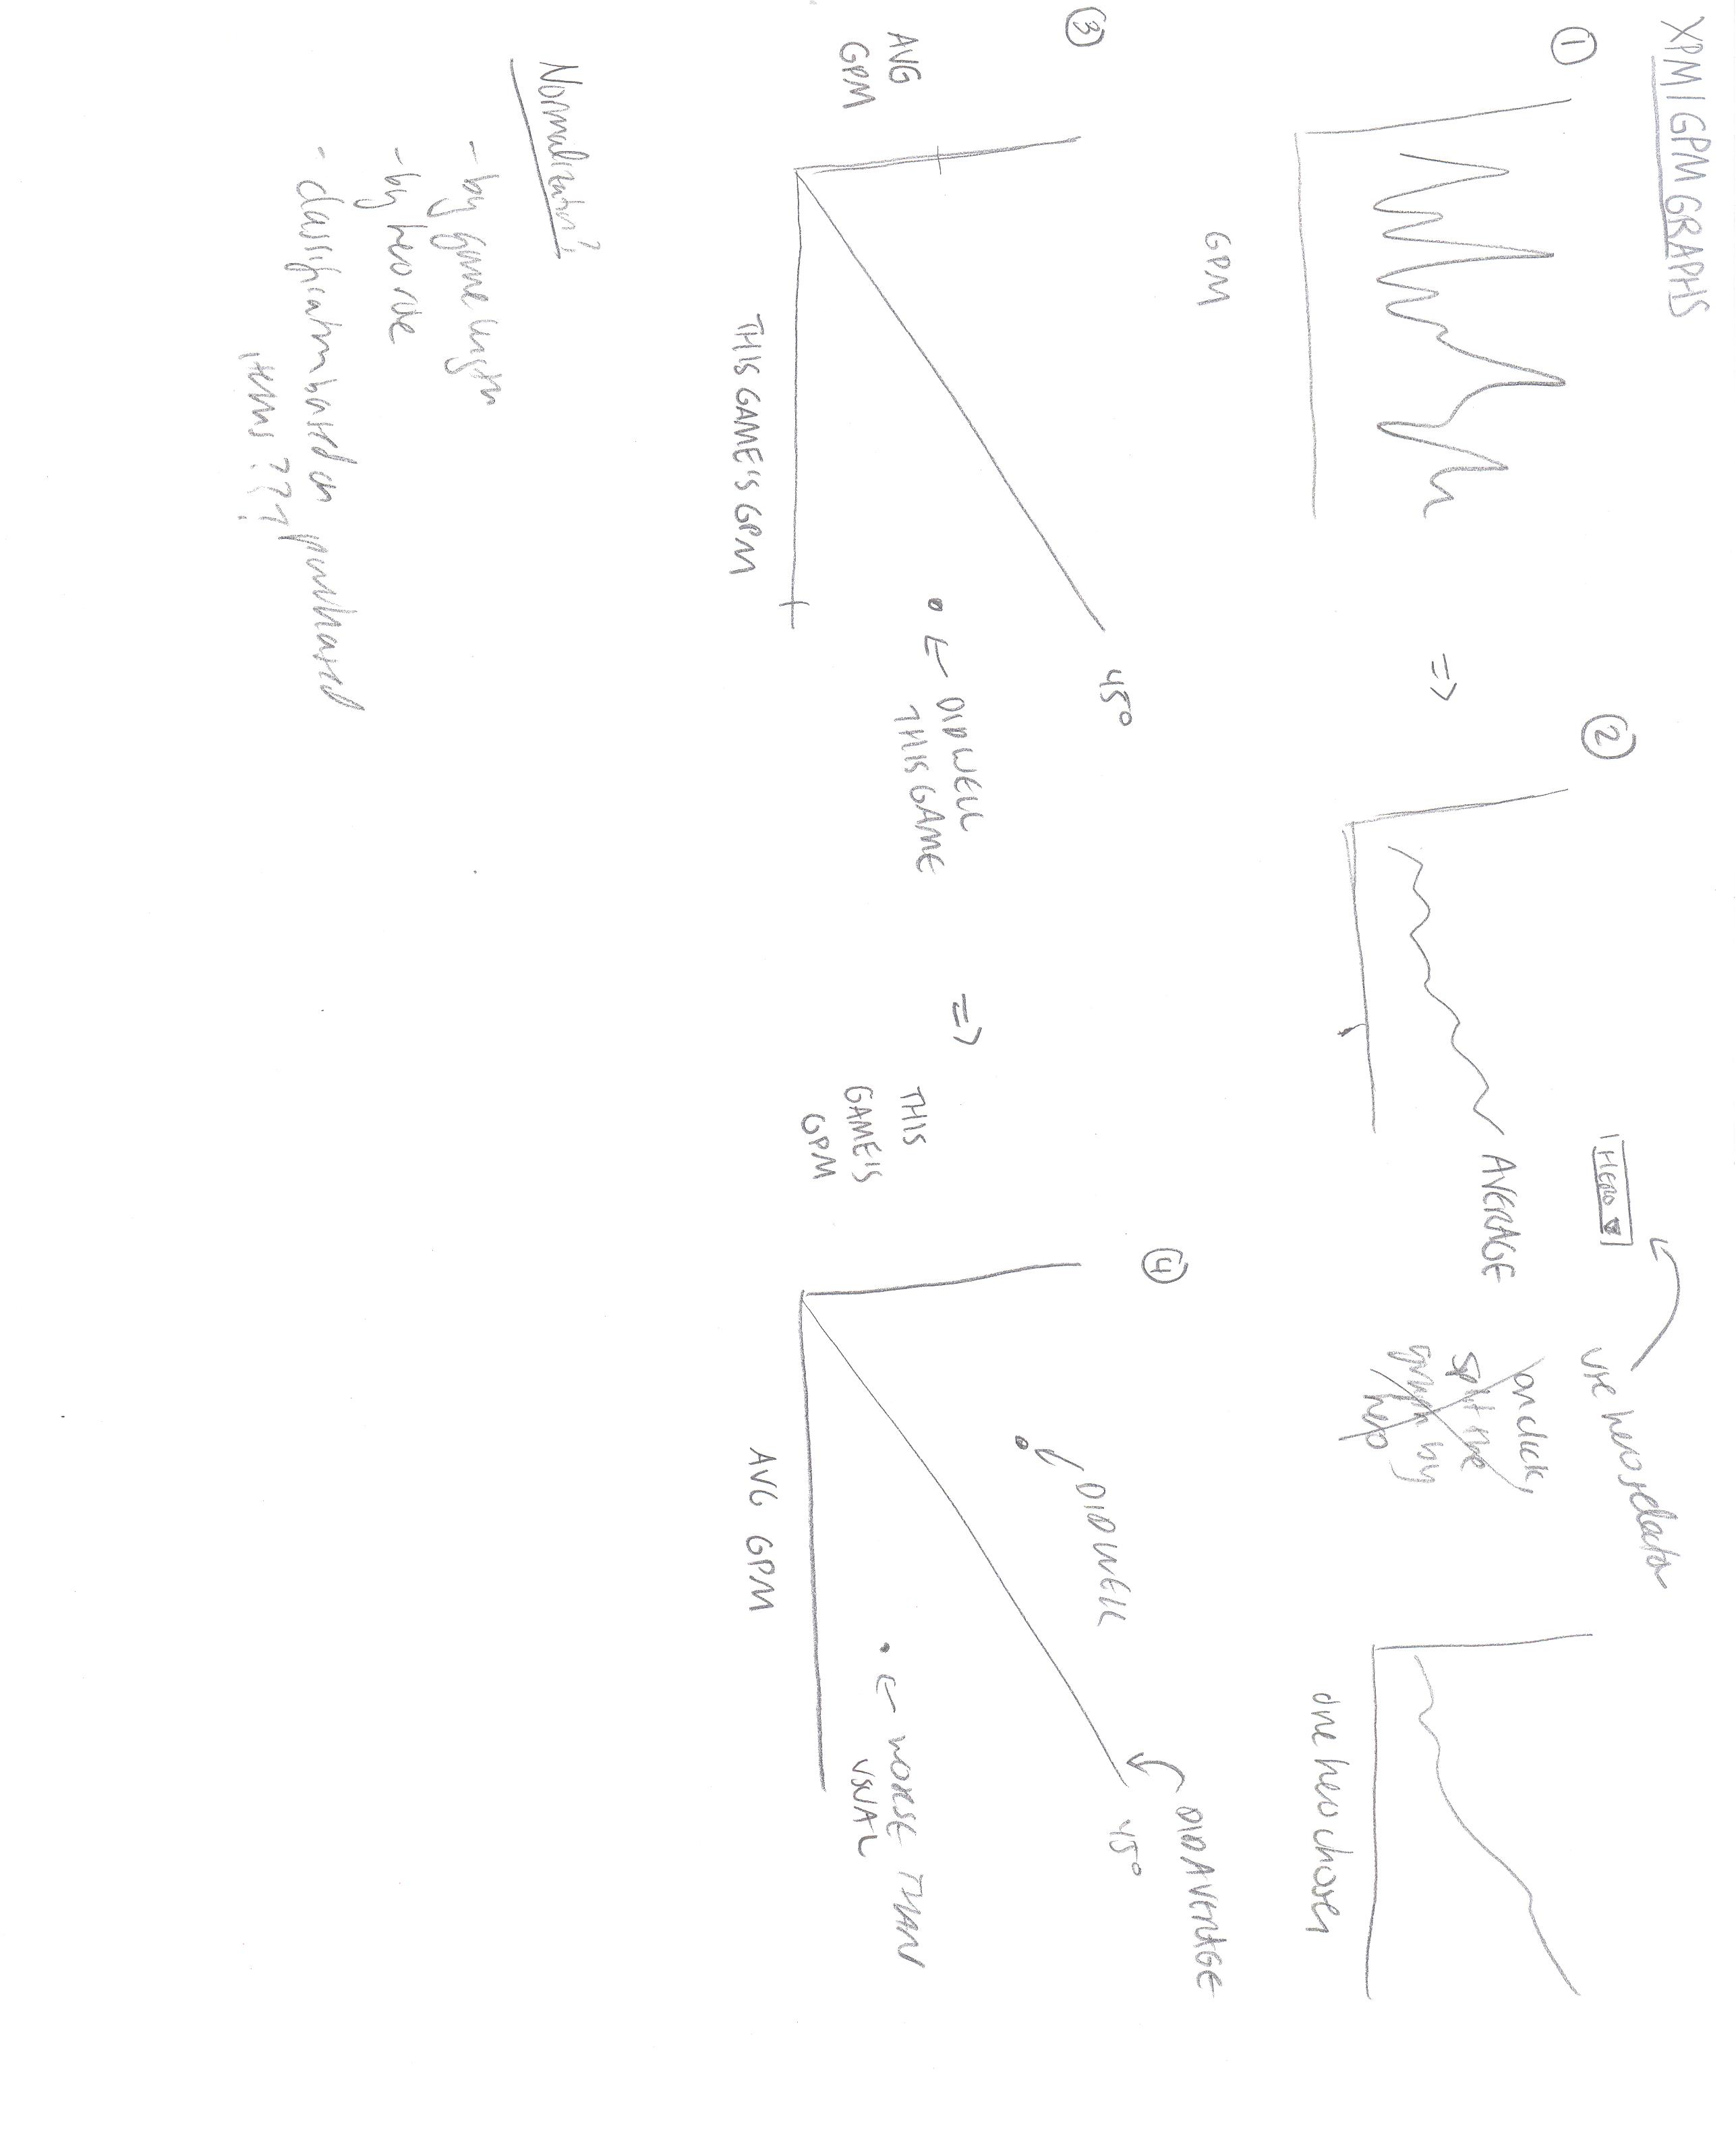 XPM | GPM GRAPHS
1
GPM
=>
2
AVERAGE
HERO ▼
use hero selector
on click
split the
graph by
hero
one hero chosen
3
AVG
GPM
THIS GAME'S GPM
45°
DID WELL
THIS GAME
=>
4
THIS
GAME'S
GPM
AVG GPM
DID WELL
DID AVERAGE
45°
WORSE THAN
USUAL
Normalization?
- by game length
- by hero role
- classification based on purchased
items ???